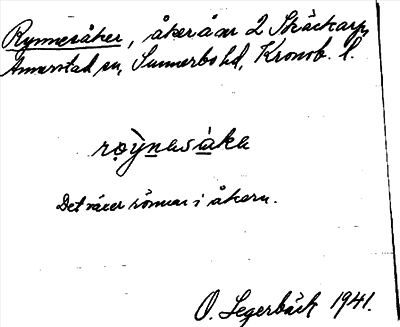 Rynnesåker, åker å nr 2 Skäckarp,
Annerstad sn, Sunnerbo hd, Kronob. l.
ro̤ỳnasàka
Det växer rönnar i åkern.
O. Legerbäck 1941.